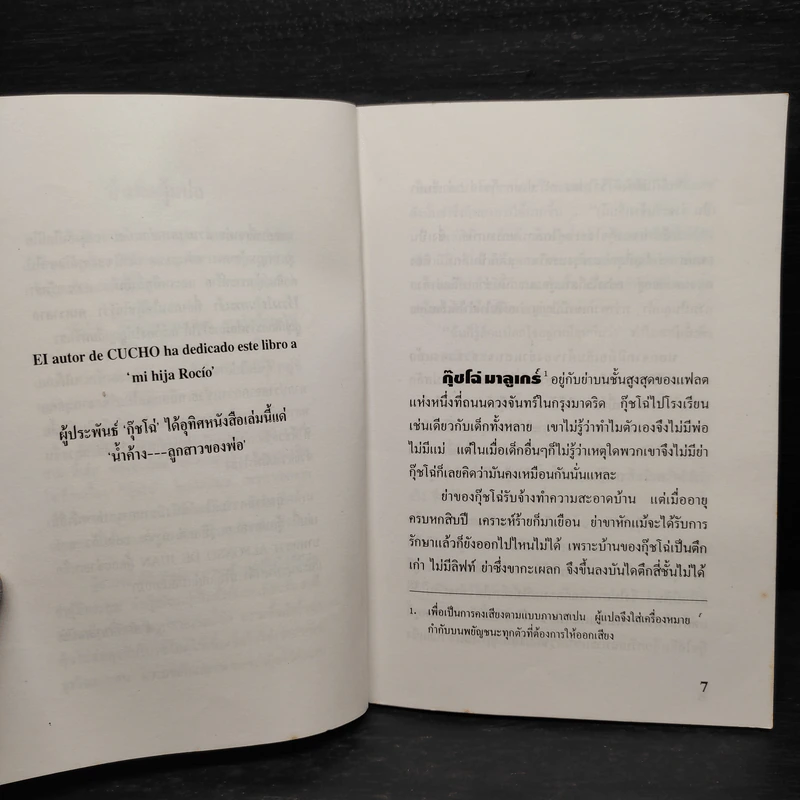 El autor de CUCHO ha dedicado este libro a
'mi hija Rocío'
ผู้ประพันธ์ 'กุ๊ชโฉ่' ได้อุทิศหนังสือเล่มนี้แด่
'น้ำค้าง---ลูกสาวของพ่อ'
กุ๊ชโฉ่ มาลูเกร์¹ อยู่กับย่าบนชั้นสูงสุดของแฟลต
แห่งหนึ่งที่ถนนดวงจันทร์ในกรุงมาดริด กุ๊ชโฉ่ไปโรงเรียน
เช่นเดียวกับเด็กทั้งหลาย เขาไม่รู้ว่าทำไมตัวเองจึงไม่มีพ่อ
ไม่มีแม่ แต่ในเมื่อเด็กอื่นๆก็ไม่รู้ว่าเหตุใดพวกเขาจึงไม่มีย่า
กุ๊ชโฉ่ก็เลยคิดว่ามันคงเหมือนกันนั่นแหละ
ย่าของกุ๊ชโฉ่รับจ้างทำความสะอาดบ้าน แต่เมื่ออายุ
ครบหกสิบปี เคราะห์ร้ายก็มาเยือน ย่าขาหักแม้จะได้รับการ
รักษาแล้วก็ยังออกไปไหนไม่ได้ เพราะบ้านของกุ๊ชโฉ่เป็นตึก
เก่า ไม่มีลิฟท์ ย่าซึ่งขากะเผลก จึงขึ้นลงบันไดตึกสี่ชั้นไม่ได้
1. เพื่อเป็นการคงเสียงตามแบบภาษาสเปน ผู้แปลจึงใส่เครื่องหมาย ´
กำกับบนพยัญชนะทุกตัวที่ต้องการให้ออกเสียง
7